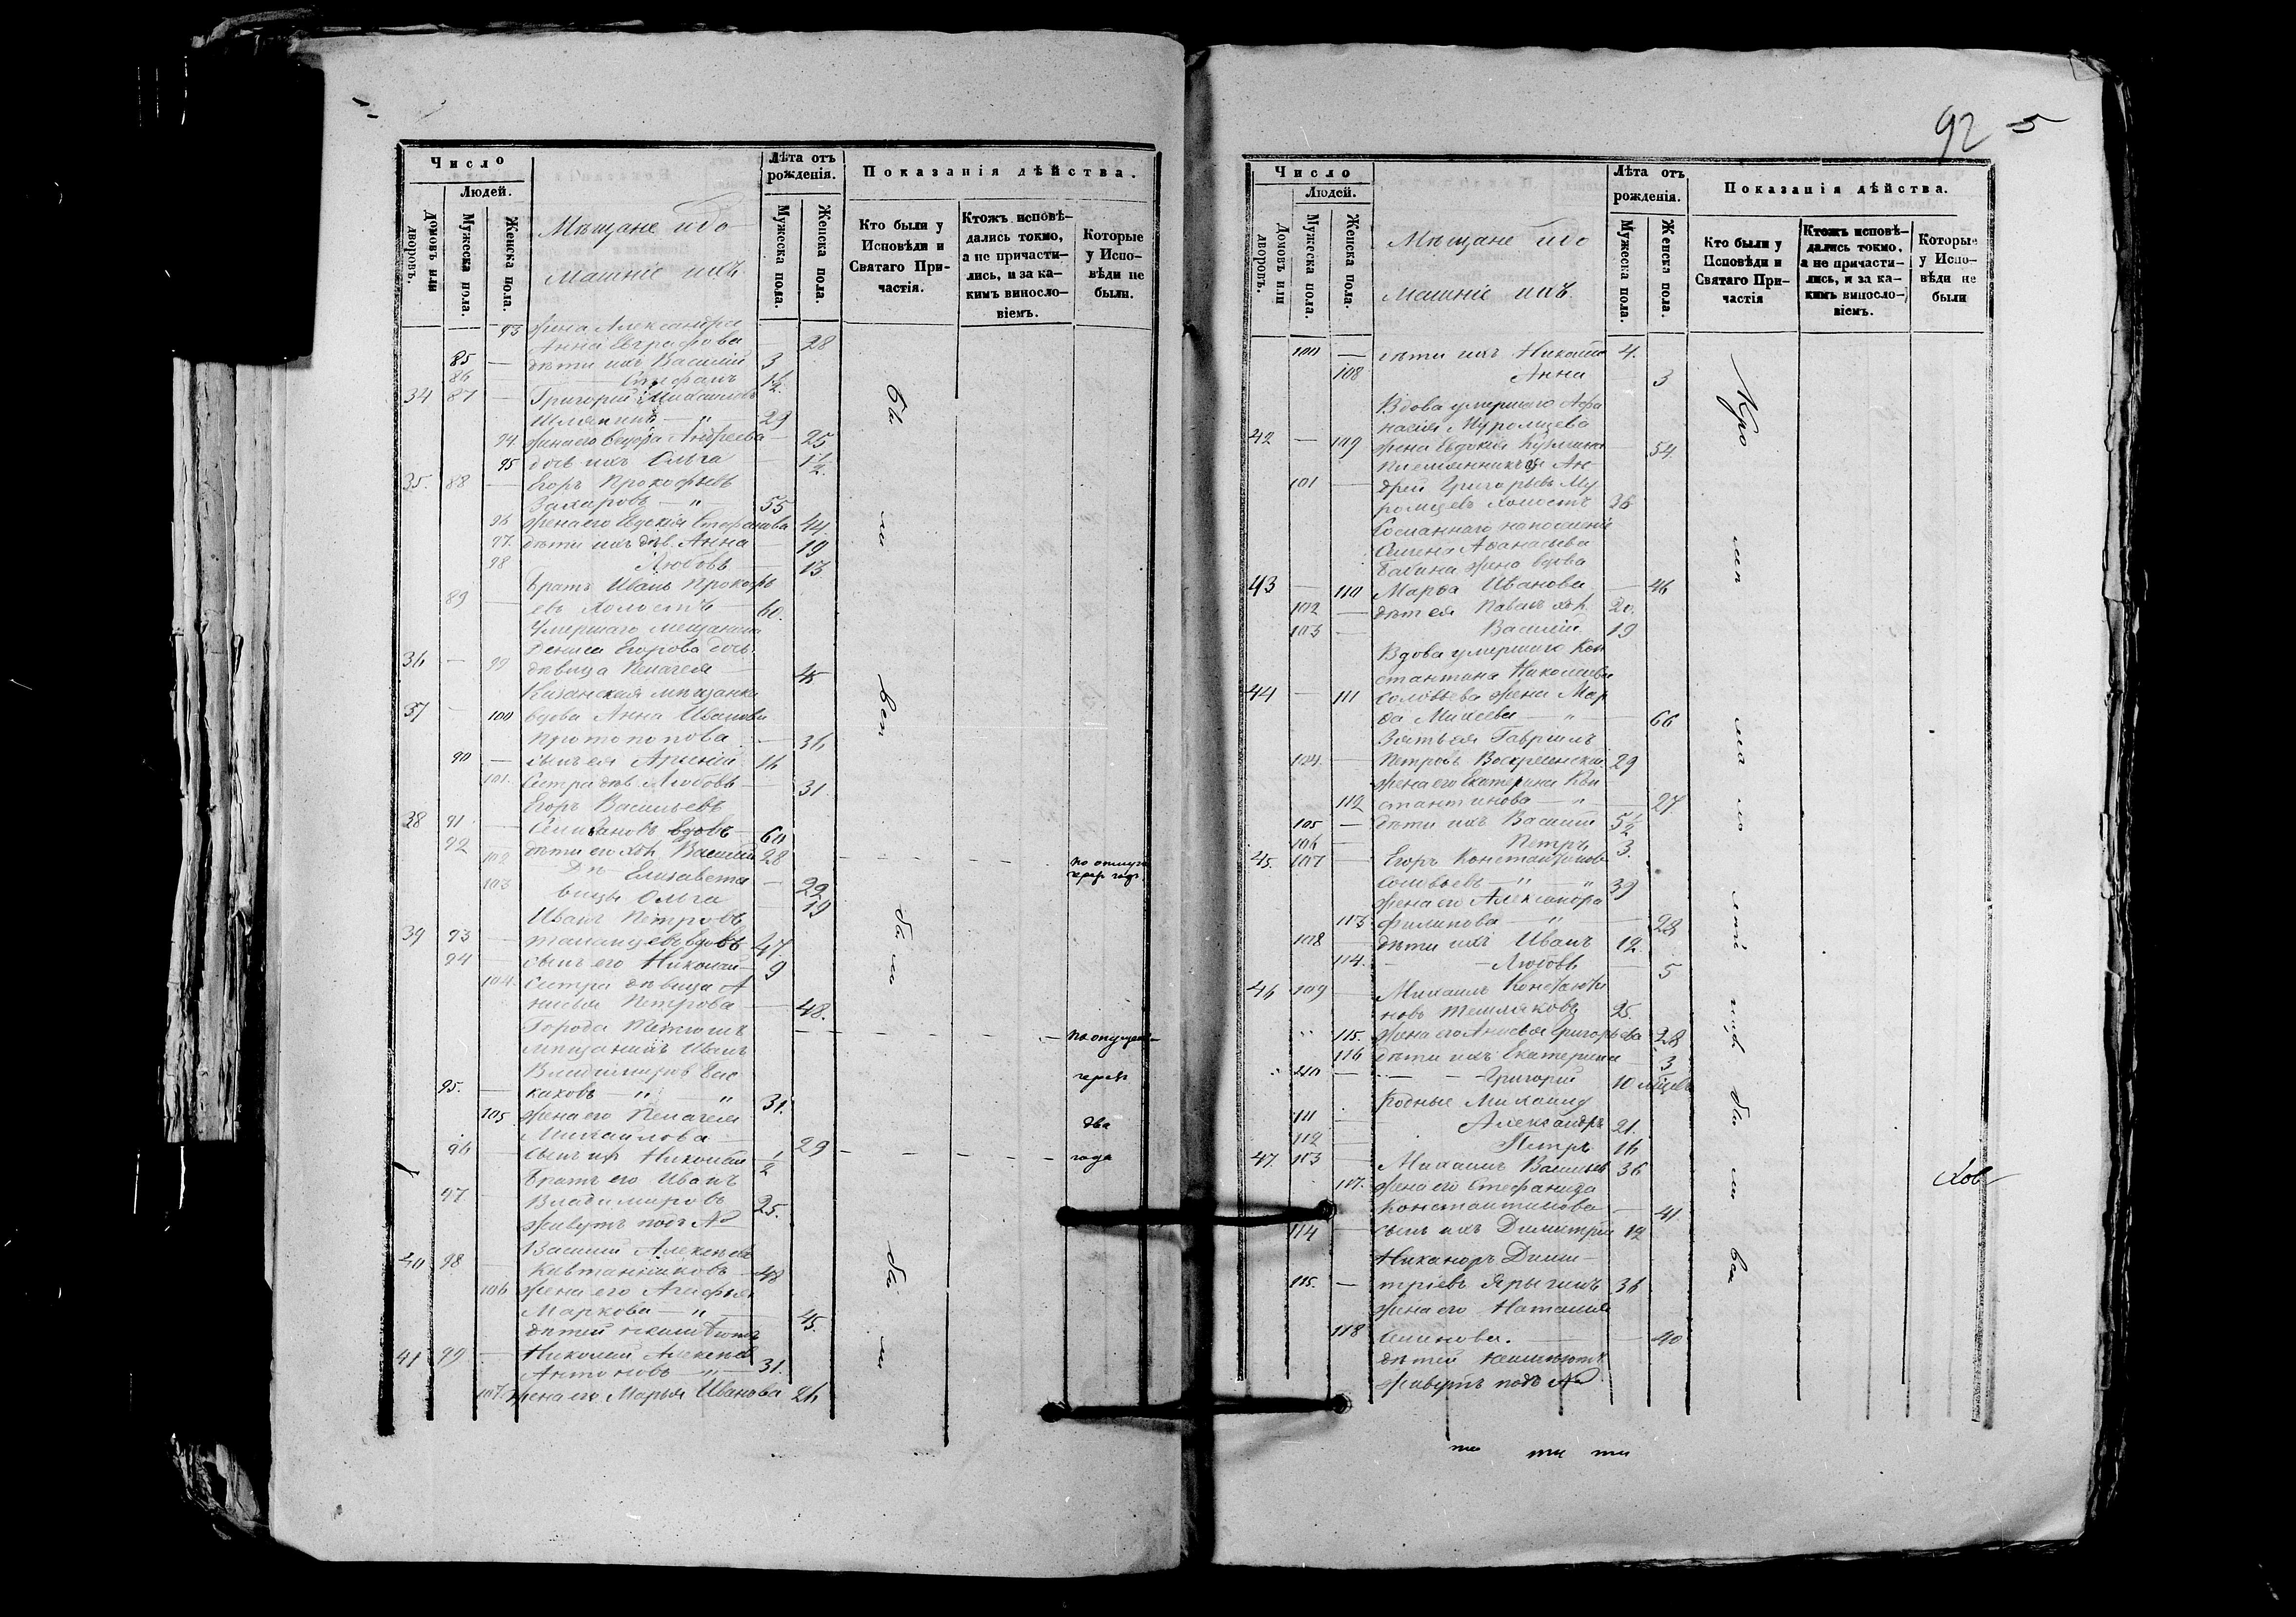 92 5
Число
Людей.
Домовъ или дворовъ.
Мужеска пола.
Женска пола.
Мѣщане и до
машніе ихъ
Лѣта отъ рожденія.
Мужеска пола.
Женска пола.
Показанія дѣйства.
Кто были у Исповѣди и Святаго Причастія.
Ктожъ исповѣдались токмо, а не причастились, и за какимъ винословіемъ.
Которые у Исповѣди не были.
93 жена Александра
Анна Евграфова 28
85 — дѣти ихъ Василій 3
86 Стефанъ 1½
34 87 — Григорій Михаиловъ
— " 29
94. жена его Андреева — 25
95 дочь ихъ Ольга — 1½
35. 88 — Егоръ Прокофьевъ
Захаровъ — " 55
96 жена его Евдокія Стефанова 44.
97. дѣти ихъ дѣв. Анна — 19
98 Любовь — 13
Братъ Иванъ Прокофь
89 — евъ холостъ — 60.
Умершаго мещанина
Дениса Егорова дочь
36 — 99 дѣвица Пелагея 45
Казанская мѣщанка
37 — 100 вдова Анна Иванова
Протопопова — 36
90 — сынъ ея Арсеній 16
101. Сестра дѣв. Любовь — 31.
Егоръ Васильевъ
38 91 — Селивановъ вдовъ — 60
92 — дѣти его хол. Василій 28 — — — — по отлуч.
102 Дѣ Елизавета — 29
103 вицы Ольга — 19
Иванъ Петровъ
39 93 — вдовъ 47.
94 — сынъ его Николай — 9
104. Сестра дѣвица А
нисья Петрова — 48.
Города Тетюшъ — — — —
мѣщанинъ Иванъ
Владимировъ Бас
95. — каковъ — " " 31. черезъ
105 жена его Пелагея два
Михаилова — 29
96 — сынъ их Николай — ½ — — — — года
Братъ его Иванъ
97 — Владимировъ 25.
Живутъ подъ №
Василій Алексѣевъ
40 98 — Кивтанниковъ — 48
106 жена его Агафья
Маркова — " — 45.
дѣтей неимѣютъ
41 99 — Николай Алексѣев
Антоновъ — " — 31.
107. жена его Марья Иванова 26
бы
ли
всѣ
бы
ли
бы
ли
Число
Людей.
Домовъ или дворовъ.
Мужеска пола.
Женска пола.
Мѣщане и до
машніе ихъ.
Лѣта отъ рожденія.
Мужеска пола.
Женска пола.
Показанія дѣйства.
Кто были у Исповѣди и Святаго Причастія
Ктожъ исповѣдались токмо, а не причастились, и за какимъ винословіемъ.
Которые у Исповѣди не были
100 — дѣти ихъ Николай 4.
108 Анна 3
Вдова умершаго Афа
насія Муромцева
42 — 109 жена Евдокія Кузмина — 54.
Племянникъ ея Ан-
101 — дрей Григорьевъ Му
ромцевъ холостъ 36
Сосланнаго на поселеніе
Семена Афанасьева
Бабина жена вдова
43 — 110 Марѳа Иванова — 46
102 — дѣти ея Павелъ хол. 20.
103 — Василій 19
Вдова умершаго Кон
стантина Николаева
44 — 111 Соловьева жена Мар
ѳа Михеева — " — 66
Зять ея Гаврiилъ
104. — Петровъ Воскресенскій 29
жена его Екатерина Кон
112 стантинова — " — 27.
105 — дѣти ихъ Василій 5½
106 — Петръ 3.
45. 107 — Егоръ Константинов
Соловьевъ — " — " 39
жена его Александра
113 Филипова — " — 28
108 — дѣти ихъ Иванъ 12
114. — — Любовь — 5
46 109 — Михаилъ Константи
новъ Тепляковъ 25.
115. жена его Анисья Григорьева 28
116 дѣти ихъ Екатерина — 3
110 — — — Григорій 10 мѣсяцев
Родные Михаилу
111 Александръ 21.
112 — Петръ 16
47. 113 — Михаилъ Васильев 36
117. жена его Стефанида
Константинова — 41
114 — сынъ ихъ Димитрій 12
Никаноръ Дими—
115. — тріевъ Ярыгинъ 36
жена его Наталия
118 Семенова. — — 40
дѣтей неимѣютъ
Живутъ подъ №
Кро
мѣ
ма
ло
лѣт
нихъ
бы
ли
всѣ